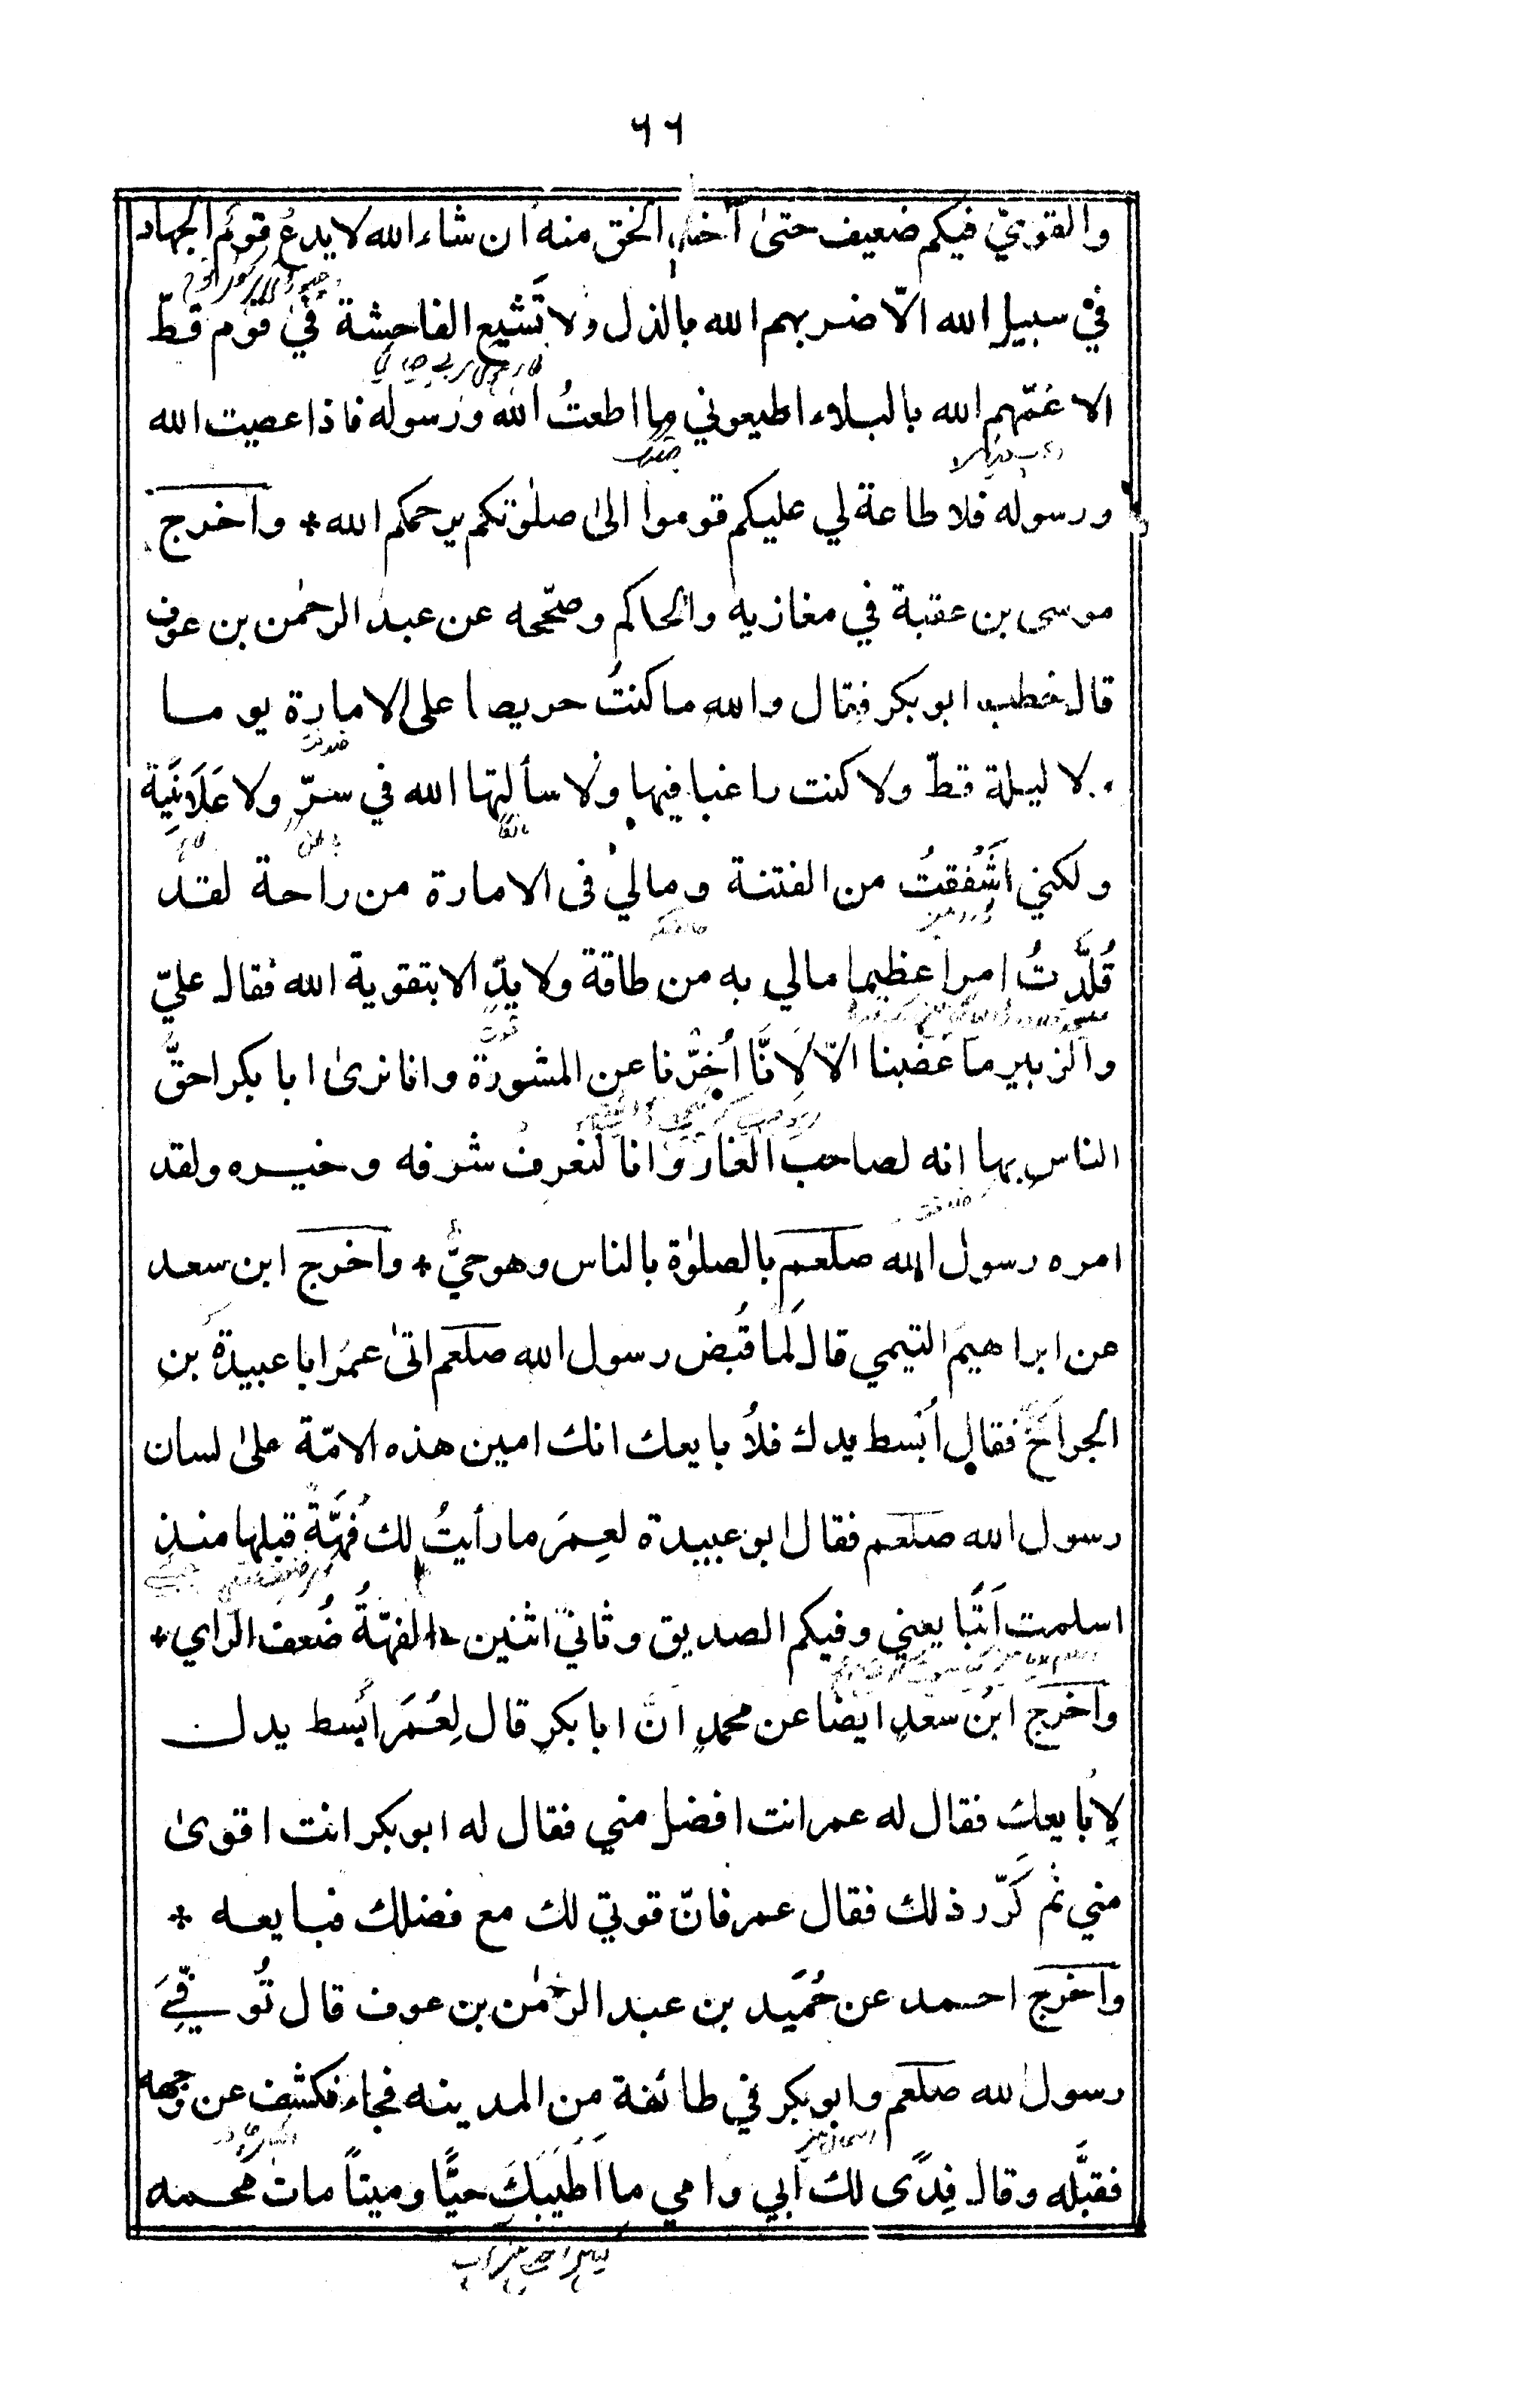 ٦٦
والقويّ فيكم ضعيف حتىٰ آخذ الحق منه ان شاء الله لا يدعُ قومٌ الجهاد
في سبيل الله الّا ضربهم الله بالذل ولا تَشيع الفاحشة في قوم قطّ
الا عَمّهم الله بالبلاء اطيعوني ما اطعتُ الله ورسوله فاذا عصيت الله
ورسوله فلا طاعة لي عليكم قوموا الىٰ صلوٰتكم يرحمكم الله * واخرج
موسى بن عقبة في مغازيه والحاكم وصحّحه عن عبد الرحمٰن بن عوف
قال خطب ابو بكر فقال والله ما كنتُ حريصا على الامارة يوما
ولا ليلة قطّ ولا كنت راغبا فيها ولا سألتها الله في سرّ ولا عَلَانِيَة
ولكني اشْفَقتُ من الفتنة ومالي فى الامارة من راحة لقد
قُلّدتُ امرا عظيما مالي به من طاقة ولا يدٍ الا بتقوية الله فقال عليّ
والزبير ما غضبنا الّا لِانَّا اُخِّرْنا عن المشورة وانا نرىٰ ابا بكر احقّ
الناس بها انه لصاحب الغار وانا لنعرف شرفه وخيره ولقد
امره رسول الله صلعم بالصلوٰة بالناس وهو حيٌّ * واخرج ابن سعد
عن ابراهيم التيمي قال لَما قُبض رسول الله صلعم اتىٰ عمرُ ابا عبيدة بن
الجراح فقال اُبْسط يدك فلاُبايعك انك امين هذه الامّة علىٰ لسان
رسول الله صلعم فقال ابو عبيدة لعمرَ ما رأيتُ لك فَهّةً قبلها منذ
اسلمت اَتُبَا يعني وفيكم الصديق وثاني اثنين * الفهّةُ ضُعف الراي *
واخرج ابن سعد ايضا عن محمد انّ ابا بكر قال لِعُمَرَ اُبْسط يدك
لاُبايعك فقال له عمر انت افضل مني فقال له ابو بكر انت اقوىٰ
مني ثم كَرّر ذلك فقال عمر فانّ قوتي لك مع فضلك فبايعه *
واخرج احمد عن حُمَيد بن عبد الرحمٰن بن عوف قال تُوفّيَ
رسول الله صلعم وابو بكر في طائفة من المدينه فجاء فكشف عن وجهه
فقبَّله وقال فِدًى لك ابي وامي ما اَطْيَبَكَ حيًّا وميتاً مات محمد